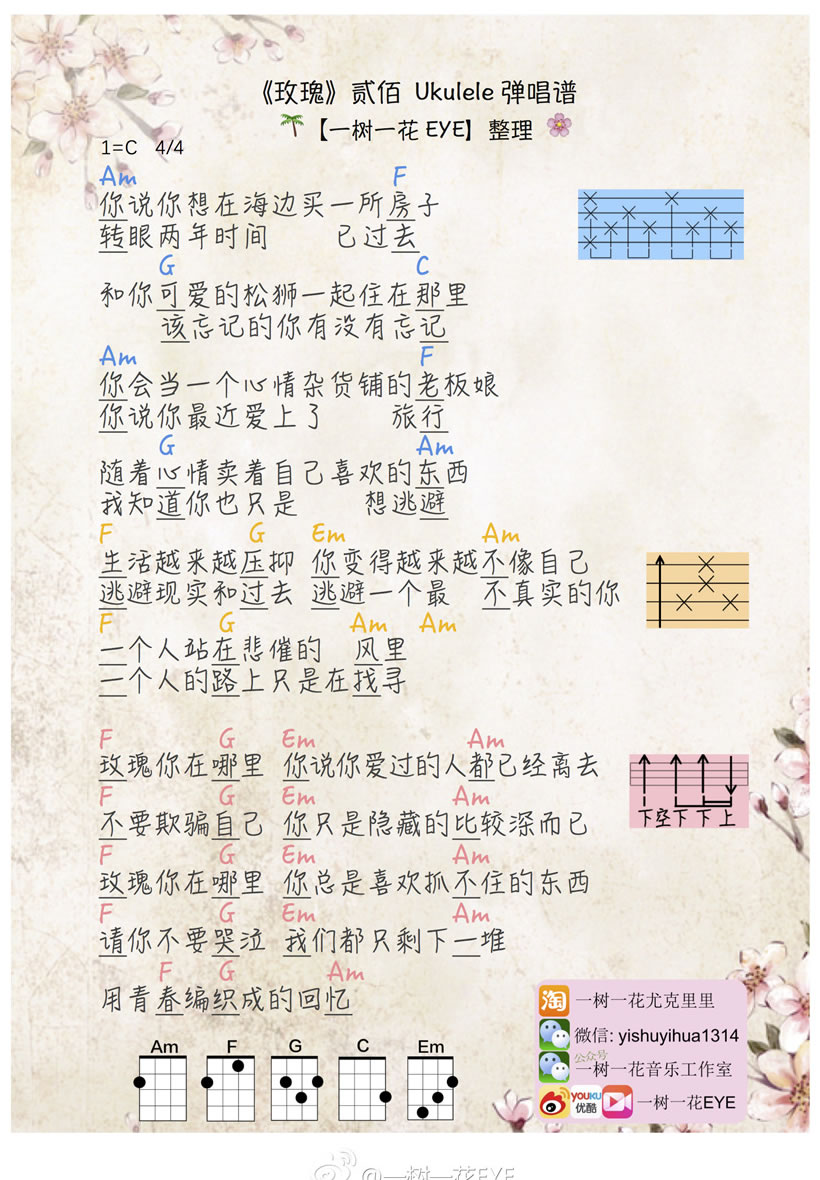 《玫瑰》贰佰 Ukulele 弹唱谱
【一树一花 EYE】整理
1=C 4/4
Am F
你说你想在海边买一所房子
转眼两年时间 已过去
G C
和你可爱的松狮一起住在那里
该忘记的你有没有忘记
Am F
你会当一个心情杂货铺的老板娘
你说你最近爱上了 旅行
G Am
随着心情卖着自己喜欢的东西
我知道你也只是 想逃避
F G Em Am
生活越来越压抑 你变得越来越不像自己
逃避现实和过去 逃避一个最 不真实的你
F G Am Am
一个人站在悲催的 风里
一个人的路上只是在找寻
F G Em Am
玫瑰你在哪里 你说你爱过的人都已经离去
F G Em Am
不要欺骗自己 你只是隐藏的比较深而已
下空下下上
F G Em Am
玫瑰你在哪里 你总是喜欢抓不住的东西
F G Em Am
请你不要哭泣 我们都只剩下一堆
F G Am
用青春编织成的回忆
Am F G C Em
淘 一树一花尤克里里
微信: yishuyihua1314
公众号
一树一花音乐工作室
YOUKU 优酷 一树一花EYE
@一树一花EYE